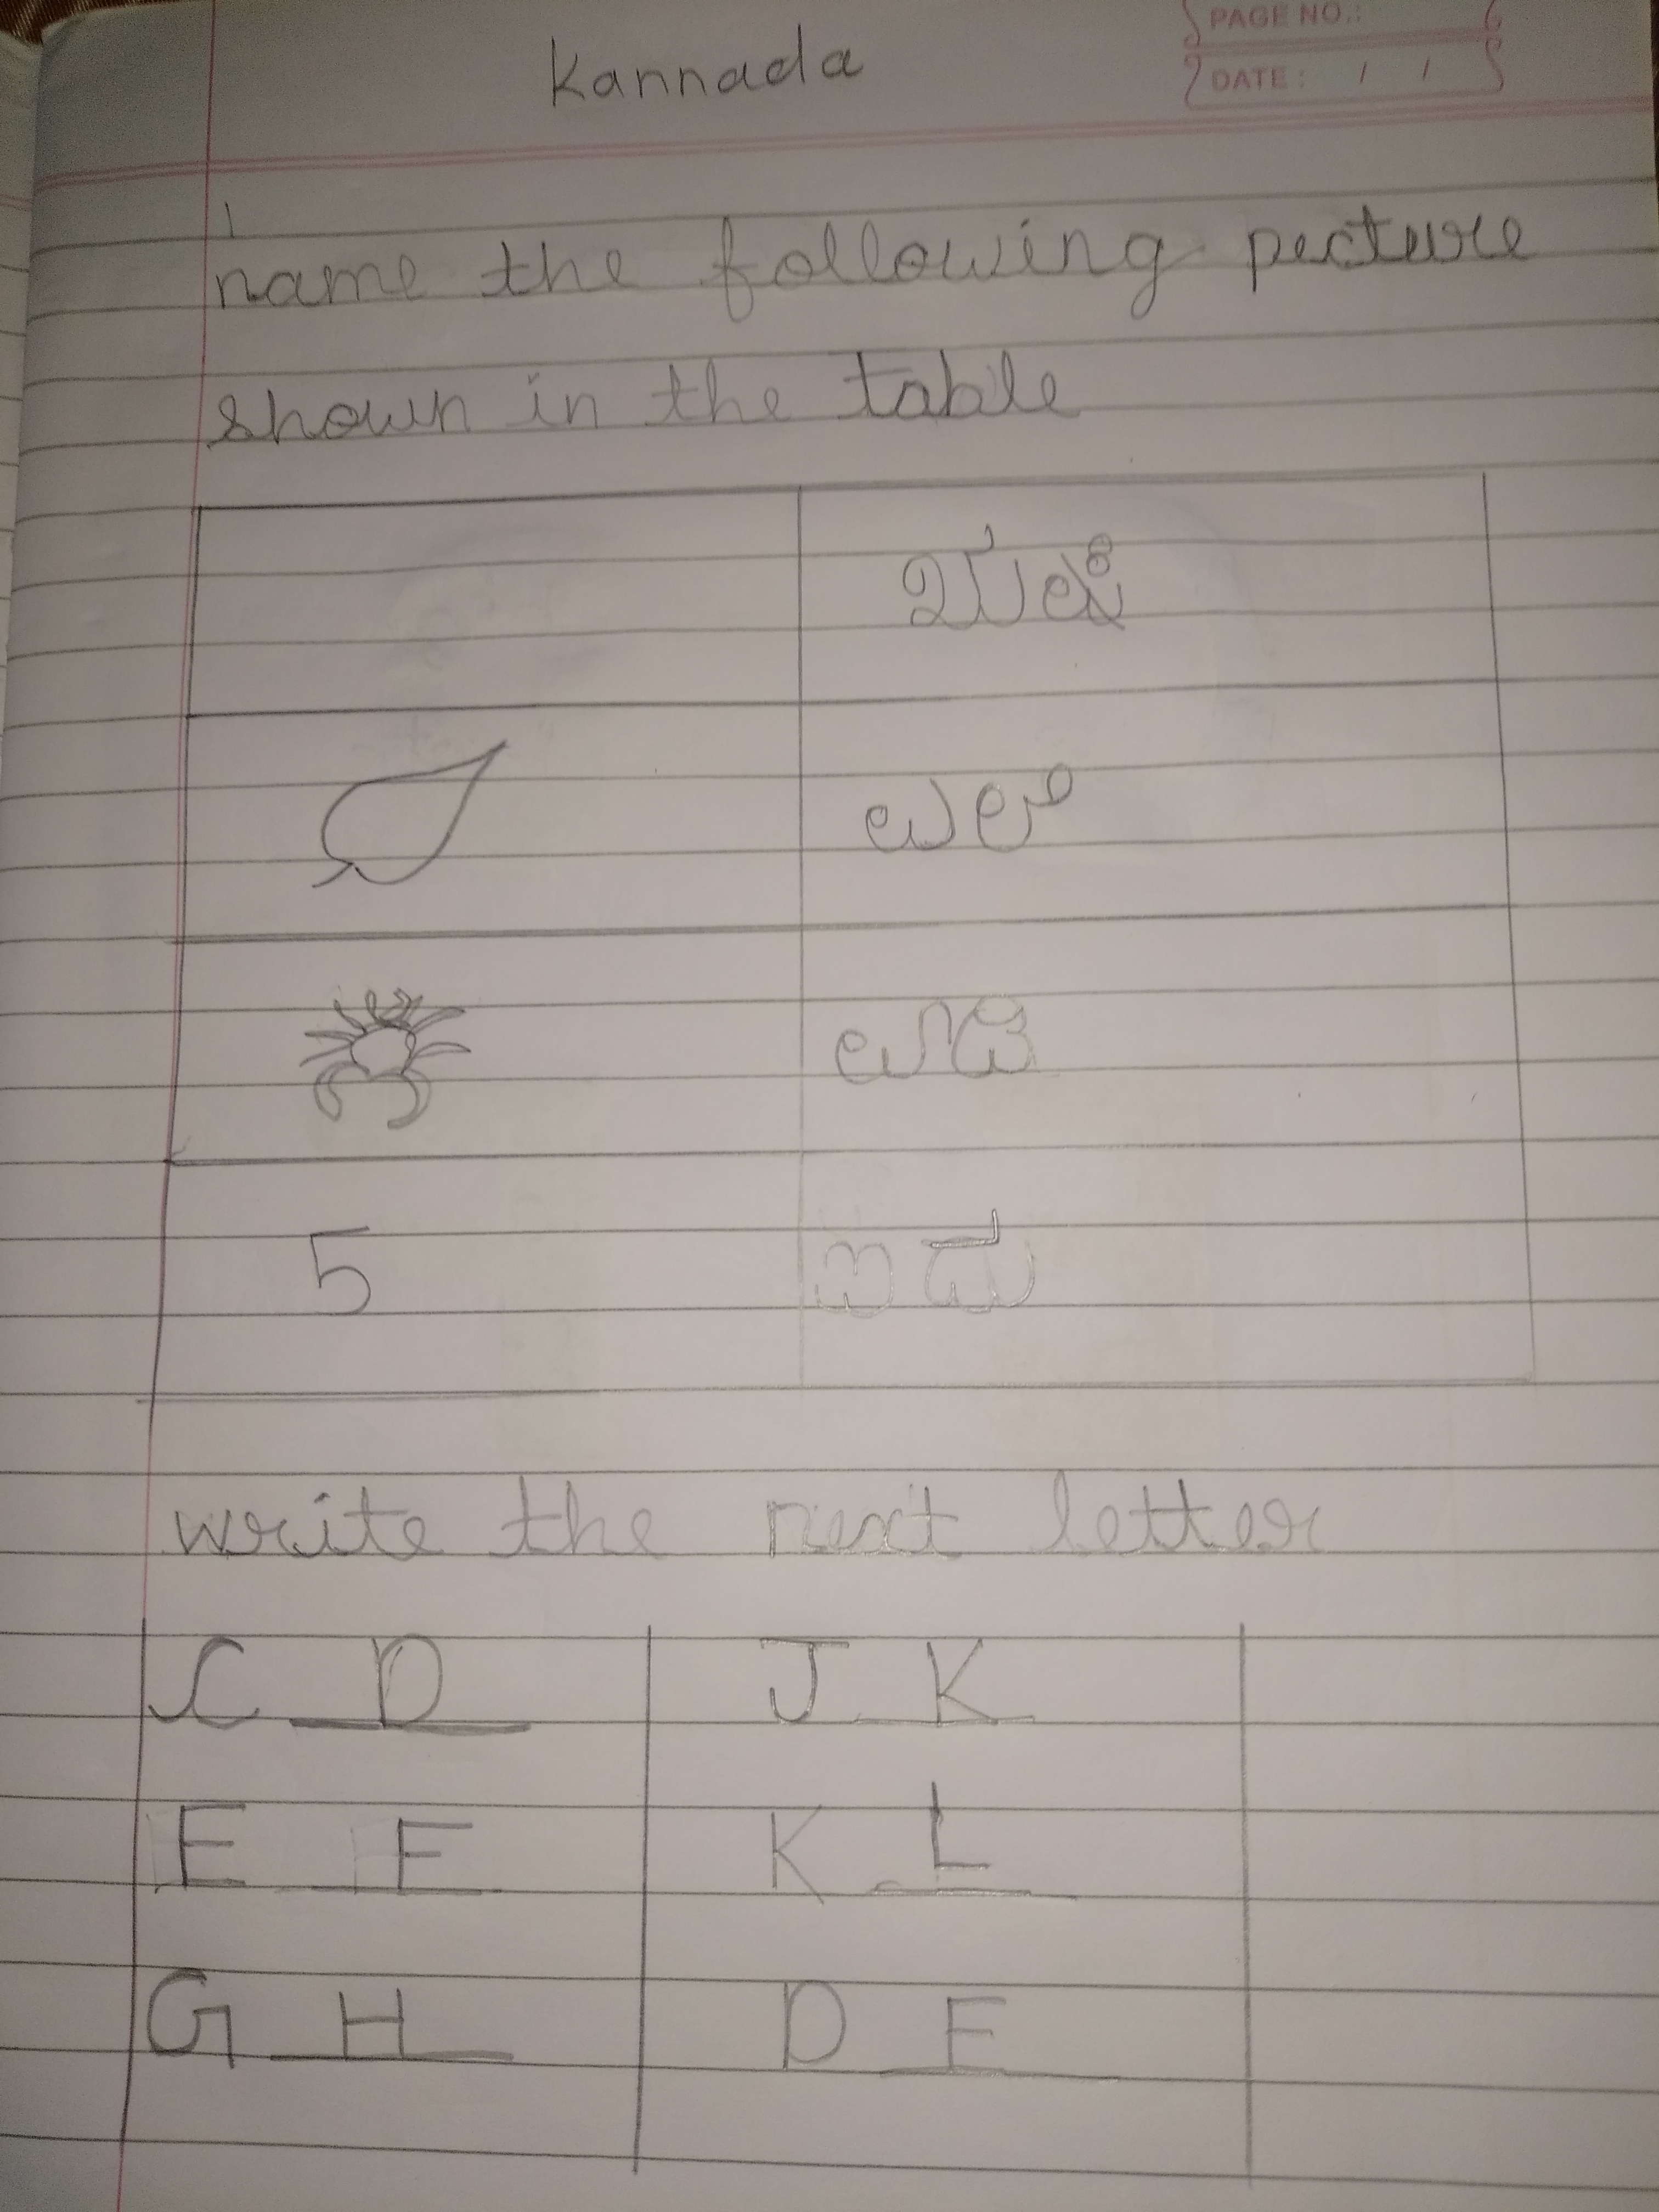 PAGE NO.:
DATE: / /
Kannada
1
name the following pecture
shown in the table
ಎಲೆ
ಏಡಿ
5 ಐದು
write the next letter
C D J K
E F K L
G H D E